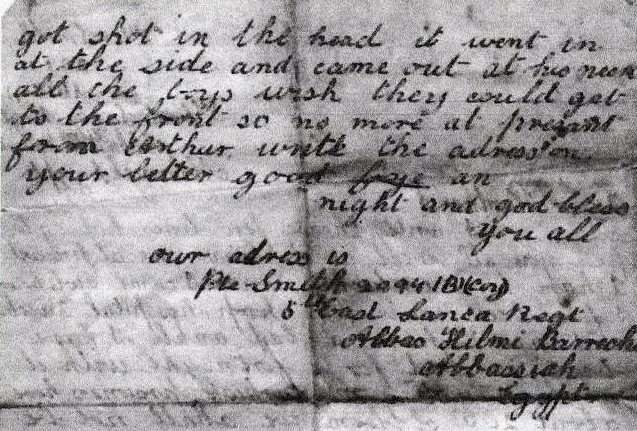 got shot in the head it went in
at the side and came out at his neck
all the boys wish they could get
to the front so no more at present
from Arthur write the adress on
your letter good bye an
night and god bless
you all
our adress is
Pte Smith 2094 (B)(Coy)
5th East Lanca Regt
Abbas Hilmi Barracks
Abbassiah
Egypt